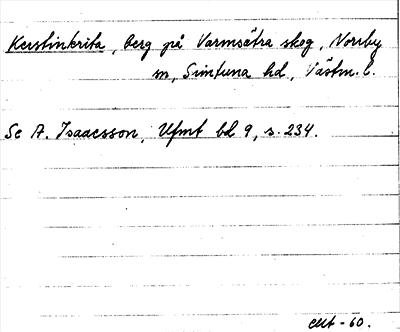 Kerstinkrita, berg på Varmsätra skog, Norrby
sn, Simtuna hd, Västm. l.
Se A. Isaacsson, Ufmt bd 9, s. 234.
-60.